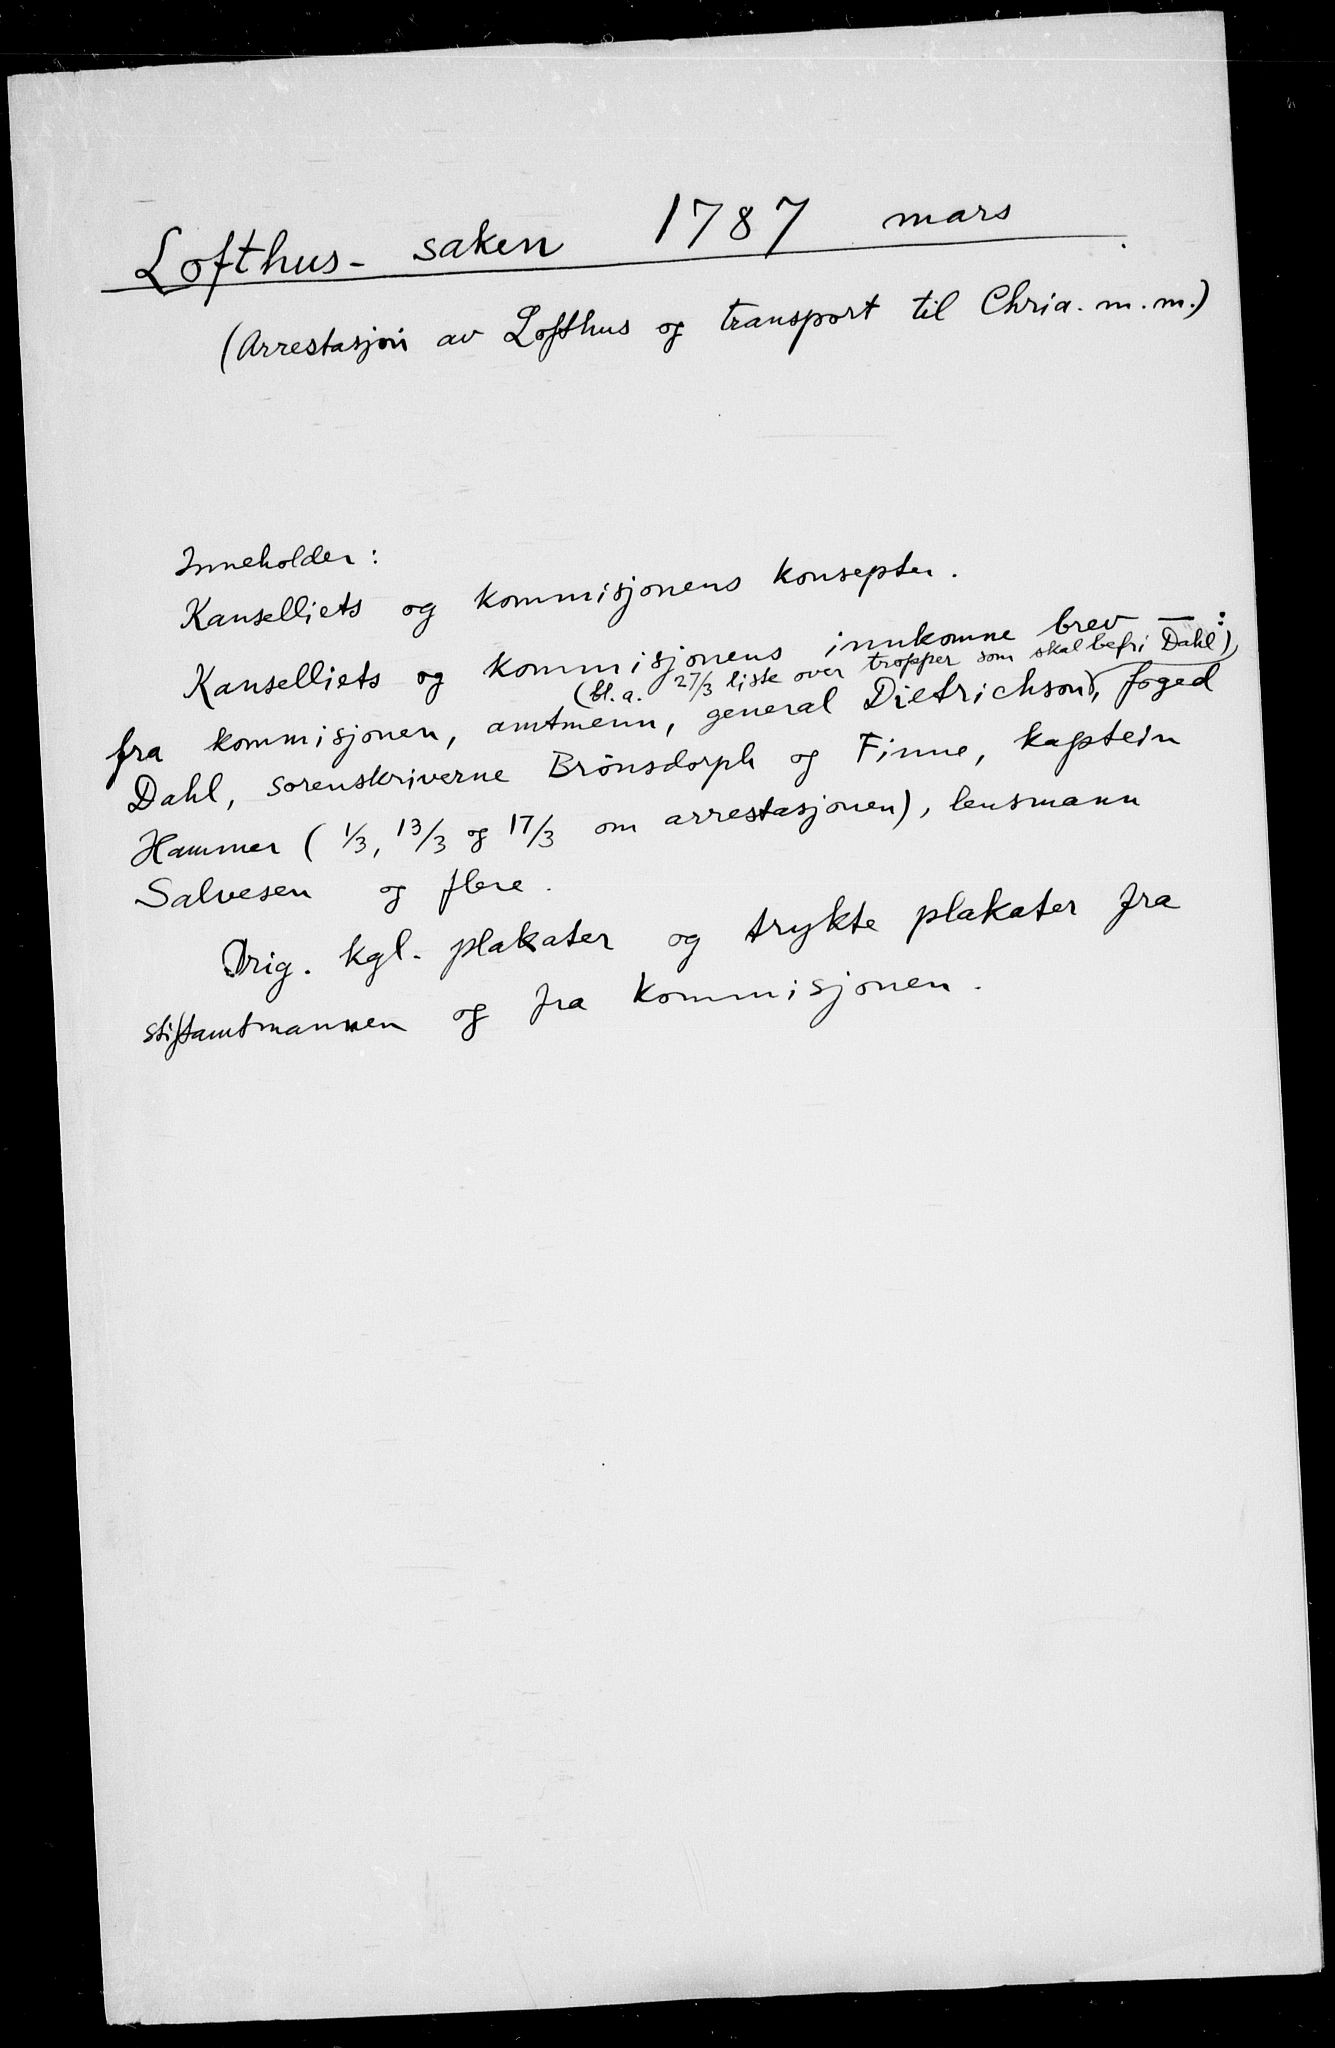 Lofthus- saken 1787 mars
(Arrestasjon av Lofthus og transport til Chria. m.m.)
Inneholder:
Kanselliets og kommisjonens konsepter.
Kanselliets og kommisjonens innkomne brev —:
(bl.a. 27/3 liste over tropper som skal befri Dahl)
fra kommisjonen, amtmenn, general Dietrichson, foged
Dahl, sorenskriverne Brönsdorph og Finne, kaptein
Hammer (1/3, 13/3 og 17/3 om arrestasjonen), lensmann
Salvesen og flere.
Orig. kgl. plakater og trykte plakater fra
stiftamtmannen og fra kommisjonen.